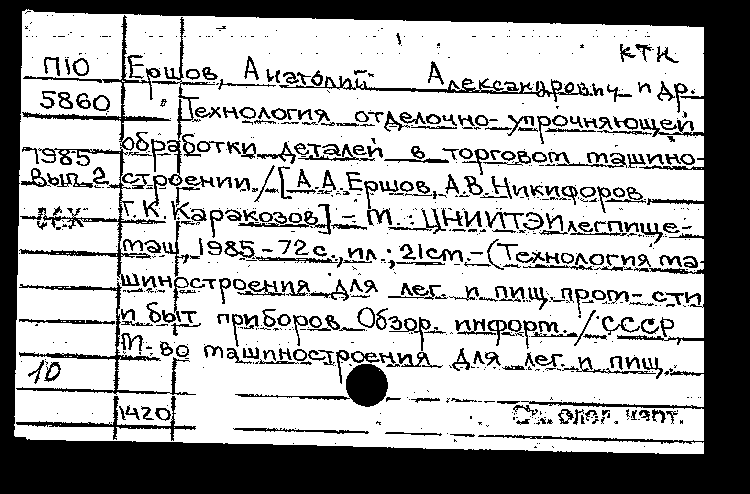 КТК
П10 Ершов, Анатолий Александрович и др.
5860 Технология отделочно-упрочняющей
обработки деталей в торговом машино-
1985
вып. 2 строении / [А.А. Ершов, А.В. Никифоров,
Г.К. Каракозов] – М.: ЦНИИТЭИлегпище-
маш, 1985 – 72 с., ил.; 21 см. – (Технология ма-
шиностроения для лег. и пищ. пром-сти
и быт приборов Обзор. информ. / СССР,
М-во машиностроения для лег. и пищ.
10
1420 См. след. карт.